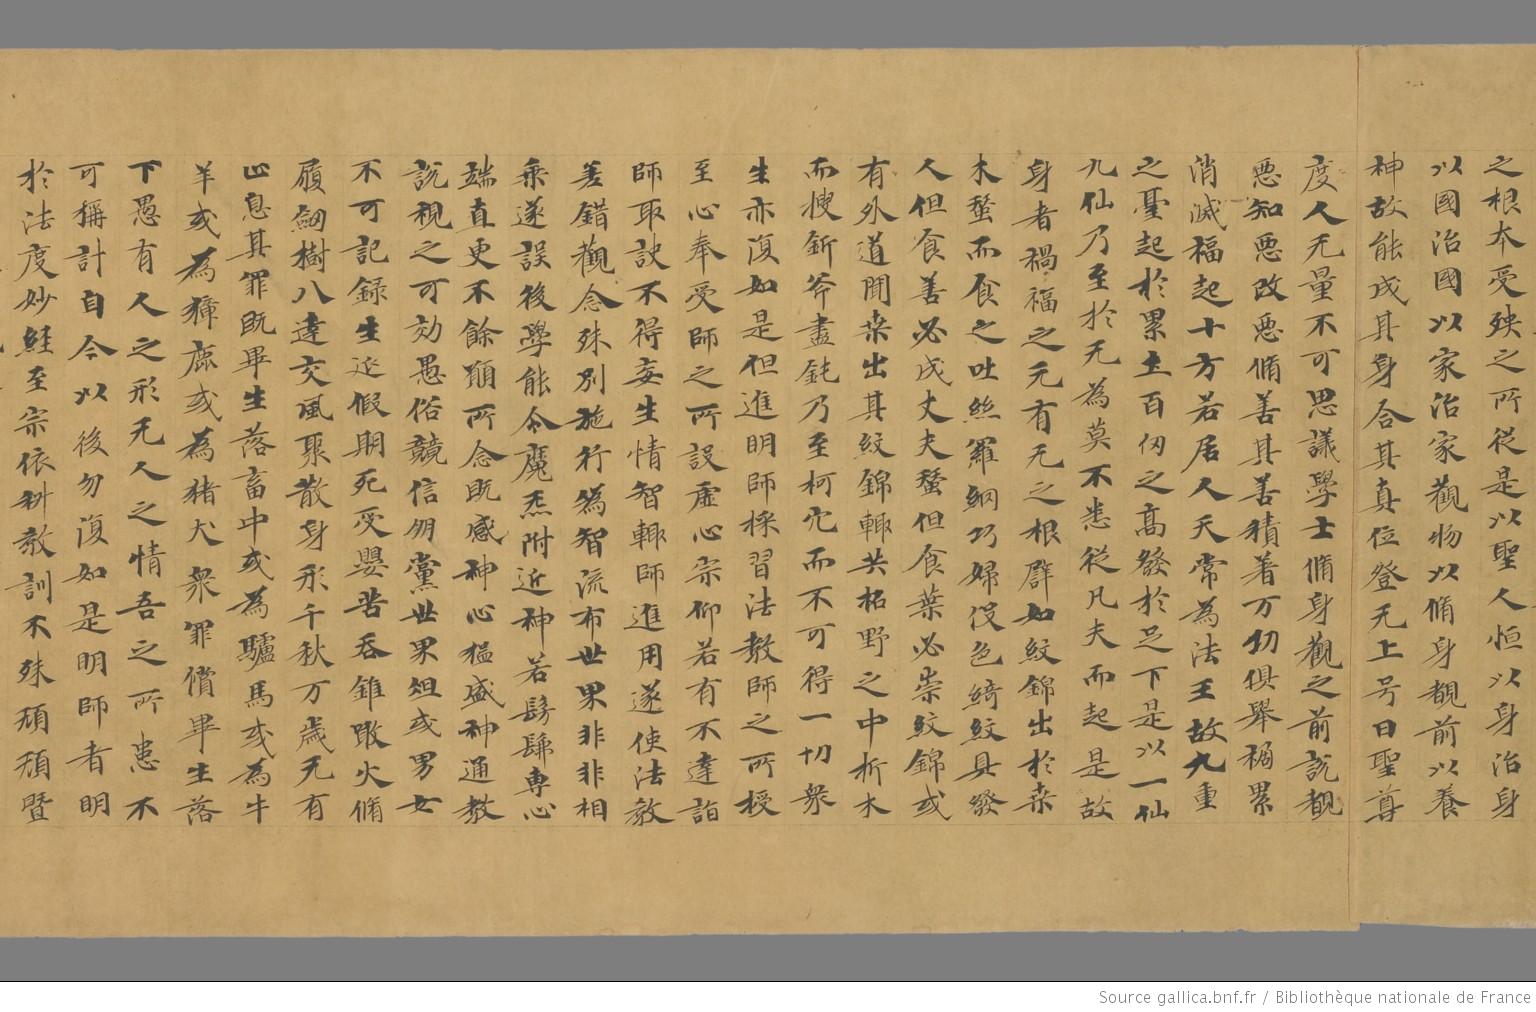 之根本受殃之所從是以聖人恒以身治身
以國治國以家治家觀物以脩身覩前以養
神故能成其身合其真位登无上号曰聖尊
度人无量不可思議學士脩身觀之前說覩
惡知惡改惡脩善其善積著万劫俱舉禍累
消滅福起十方若居人天常為法王故九重
之臺起於累土百仞之高發於足下是以一仙
九仙乃至於无為莫不悉從凡夫而起是故
身者禍福之元有无之根群如紋錦出於桒
木蝥而食之吐絲羅網巧婦伇色綺紋具發
人但食善必成丈夫蝥但食葉必崇紋錦或
有外道聞桒出其紋錦輙共柘野之中析木
而㮴斫斧盡鈍乃至柯宂而不可得一切衆
生亦復如是但進明師採習法教師之所授
至心奉受師之所誤虛心宗仰若有不達詣
師取訣不得妄生情智輙師進用遂使法教
差錯觀念殊別施行為智流布世果非非相
乘遂誤後學能令魔炁附近神若髣髴専心
端直更不餘願所念既感神心猛盛神通教
說視之可効愚俗競信朋黨世果爼或男女
不可記録生近假期死受嬰苦吞錐噉火脩
履劒樹八達交風聚散身形千秋万歲无有
止息其罪既畢生落畜中或為驢馬或為牛
羊或為獐鹿或為猪犬衆罪償畢生落
下愚有人之形无人之情吾之所患不
可稱計自今以後勿復如是明師者明
於法度妙鮭至宗依科教訓不殊頑頑暨